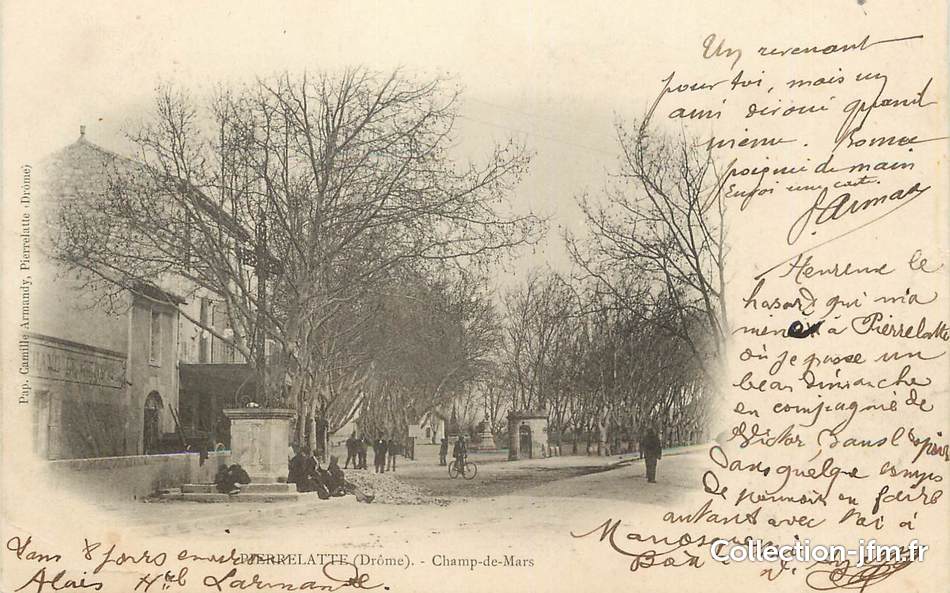 Un revenant
pour toi, mais un
ami dévoué quand
même. Bonne
poignée de main
Enfoi une carte.
J. Armand
Heureux le
hasard qui m'a
mené à Pierrelatte
où je passe un
beau Dimanche
en compagnie de
Victor, dans l'espoir
Dans quelque temps
de pouvoir en faire
autant avec toi à
Manosque
Pap. Camille Armandy, Pierrelatte (Drôme)
PIERRELATTE (Drôme). - Champ-de-Mars
Dans 8 jours
Alais Htel Larmande.
Collection-jfm.fr